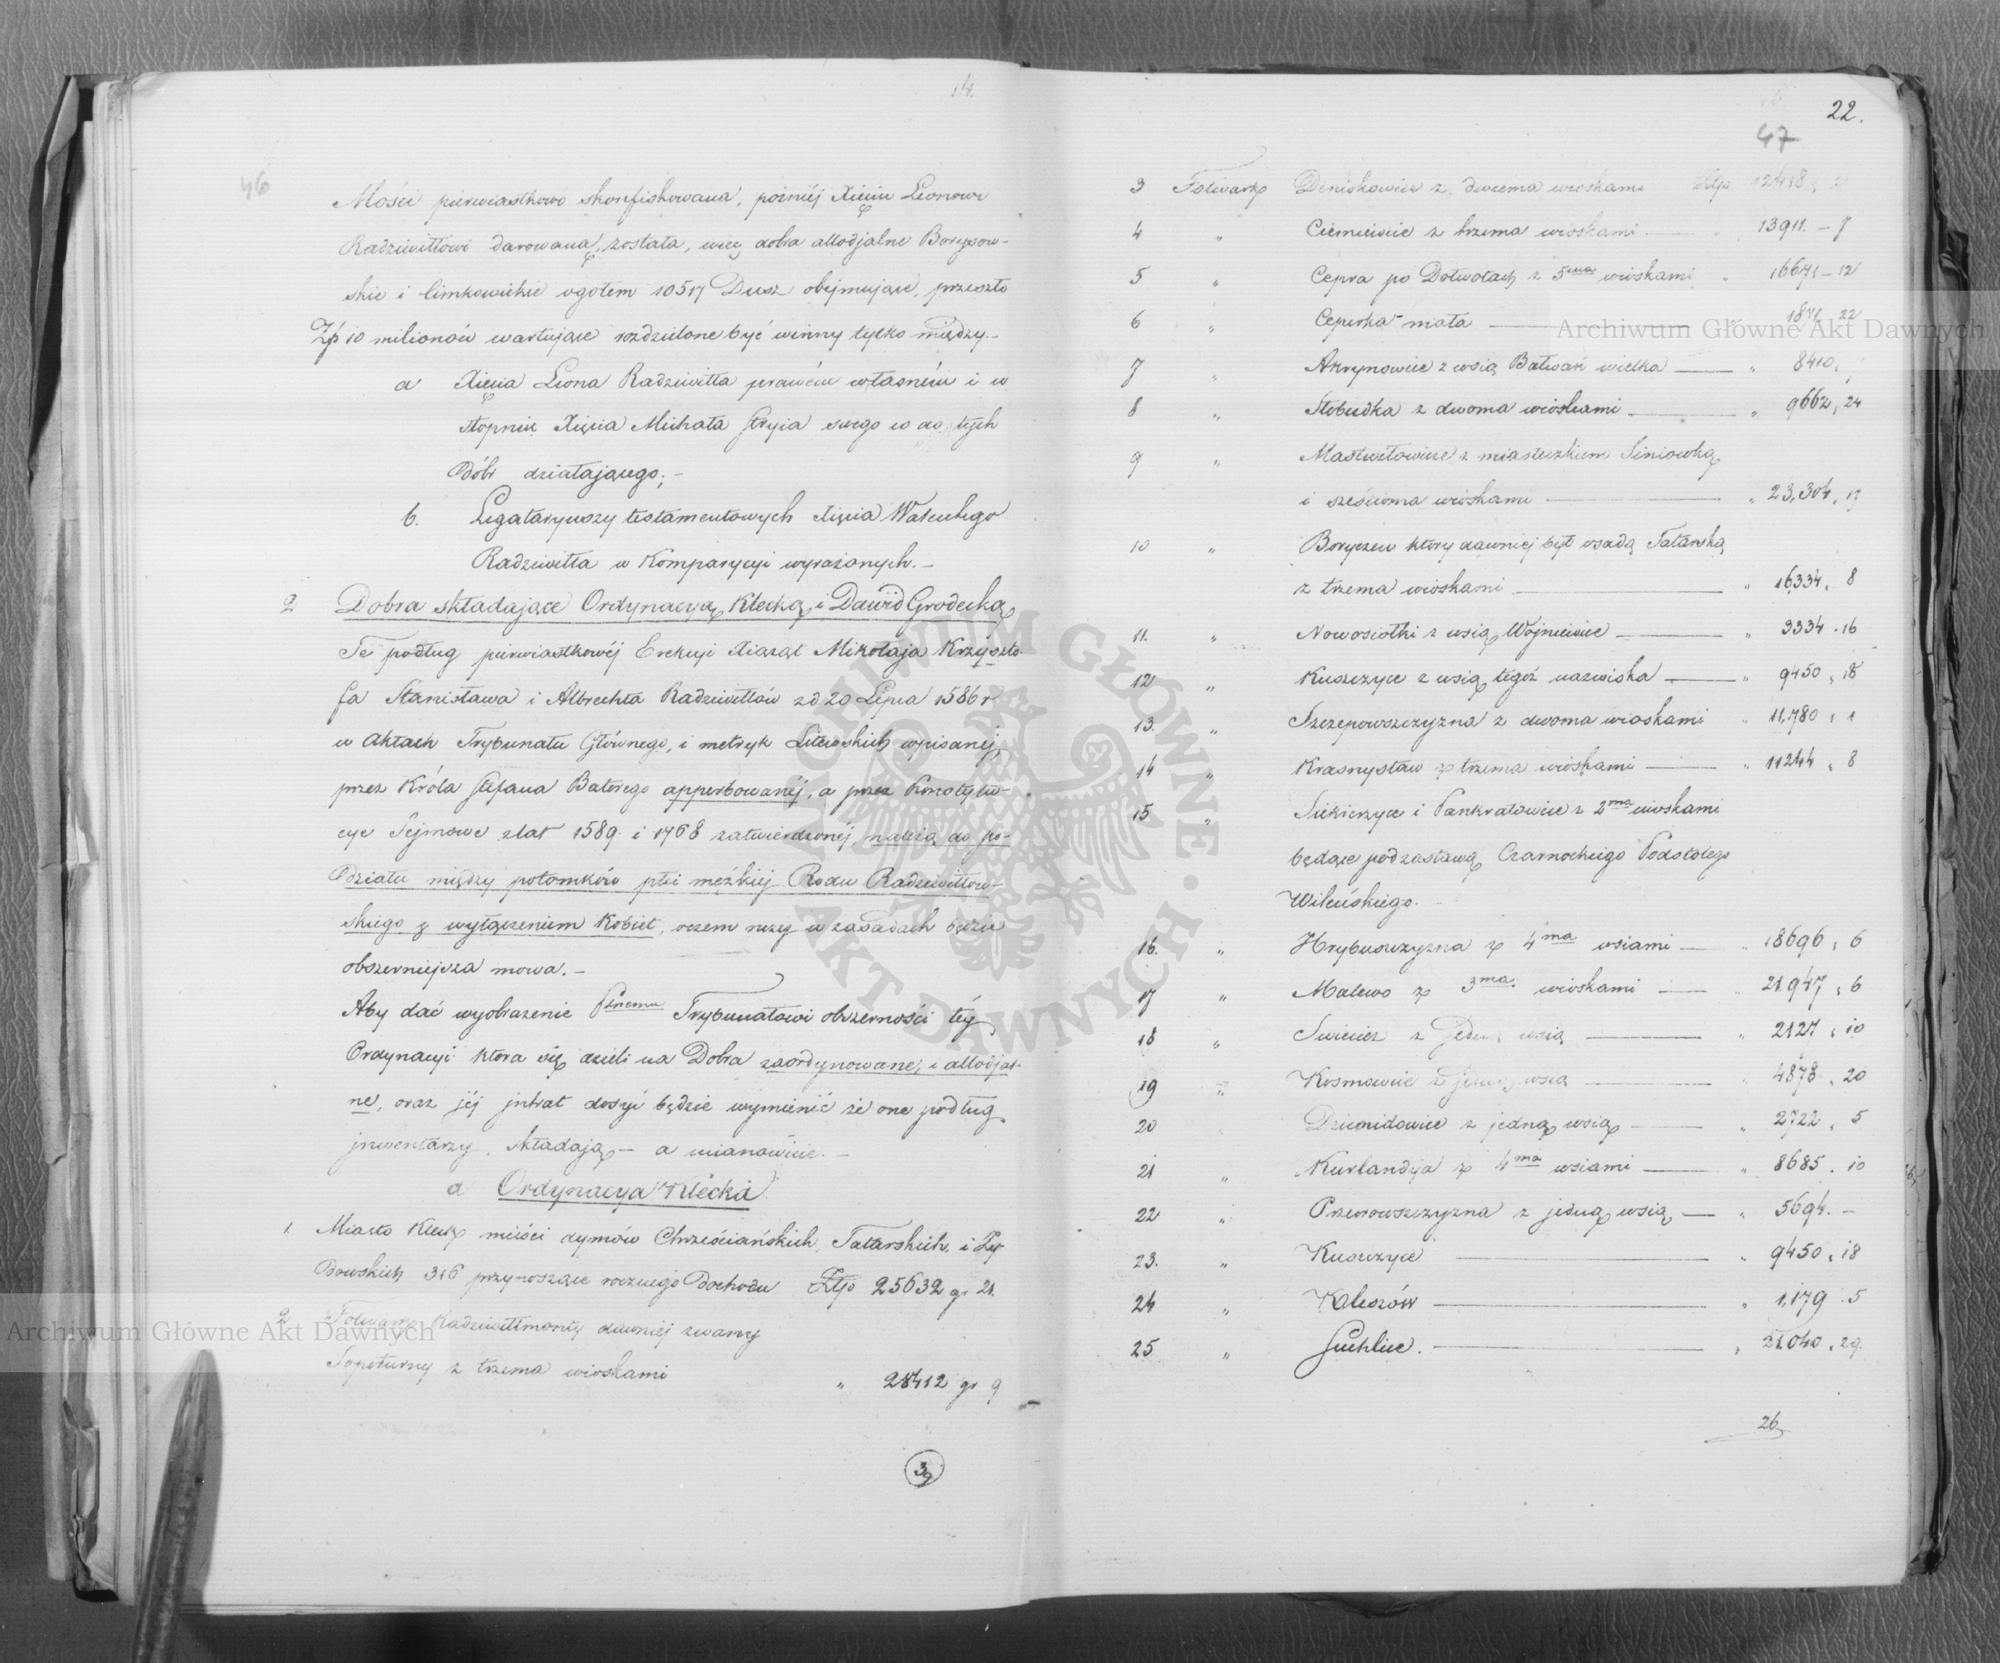 14.
46
Mości pierwiastkowo skonfiskowaną, poźniéj Xięciu Leonowi
Radziwiłłowi darowaną została, więc dobra allodjalne Borysow-
skie i limkowickie ogołem 10517 Dusz obejmujące, przeszło
Złp 10 milionów wartujące rozdzielone być winny tylko między.-
a Xięcia Leona Radziwiłła prawém własném i w
stopniu Xięcia Michała Stryia swego w do tych
Dóbr działającego; -
b. Legataryuszy testamentowych Xięcia Walentego
Radziwiłła w Komparycyi wyrażonych. -
2 Dobra składające Ordynacyą Klecką i Dawid Grodecką
Te podług pierwiastkowéj Erekcyi Xiąząt Mikołaja Krzyszto-
fa Stanisława i Albrechta Radziwiłłów z d 20 Lipca 1586 r
w Aktach Trybunału Głównego, i metryk Litewskich wpisanéj
przez Króla Stefana Batorego approbowanéj, a przez Konstytu-
cye Sejmowe z lat 1589 i 1768 zatwierdzonéj, należą do po-
Działu między potomków płci męzkiej Rodu Radziwiłłow-
skiego z wyłączeniem Kobiet, oczem niżej w zasadach będzie
obszerniejsza mowa. -
Aby dać wyobrażenie Trybunałowi obszerności téj
Ordynacyi która się dzieli na Dobra zaordynowane, i allodjal-
ne, oraz jéj jntrat dosyć będzie wymienić że one podług
jnwentarzy składają - a mianowicie. -
a Ordynacya Klecka
1 Miasto Kleck mieści dymów Chrześciańskich, Tatarskich, i Ży-
Dowskich 316 przynoszące rocznego Dochodu Złp 25632 gr 21.
2 Folwark Radziwiłłmonty dawniej zwany
z trzema wioskami " 28412 gr 9
39
22.
47
3 Folwark Deniskowice z dwiema wioskami Złp 12418
4 " z trzema wioskami 13911. - 7
5 " Cepra po Dołwołach z 5ma wioskami " 16671 - 12
6 " Ceperka mała 1871 22
7 " z wsią Bałwań wielka " 8410
8 " Słobudka z dwoma wioskami " 9662, 24
9 " z miasteczkiem Siniawką
i sześcioma wioskami " 23,304, 17
10 " Boryczew który dawniej był osadą Tatarską
z trzema wioskami " 16334, 8
11. " Nowosiołki z wsią Wojniewice " 3334. 16
12 " z wsią tegoż nazwiska " 9450, 18
13. " Szczepowszczyzna z dwoma wioskami " 11,780, 1
14 " Krasnystaw z trzema wioskami " 11244, 8
15 " Siekierzyce i Pankratowice z 2ma wioskami
będące pod zastawą Czarnockiego Podstolego
Wileńskiego.
16. " z 4ma wsiami " 18696, 6
17 " Malewo z 3ma wioskami " 21.947, 6
18 " z Jedną wsią " 2127, 10
19 " Kosmowice z jedną wsią " 4878, 20
20 z jedną wsią " 2722, 5
21 " Kurlandya z 4ma wsiami " 8685. 10
22 " z jedną wsią " 5694. -
23. " " 9450, 18
24 " " 1,179. 5
25 " Suchlicze. " 21,040, 29
26
Archiwum Główne Akt Dawnych
Archiwum Główne Akt Dawnych
ARCHIWUM GŁÓWNE · AKT DAWNYCH ·